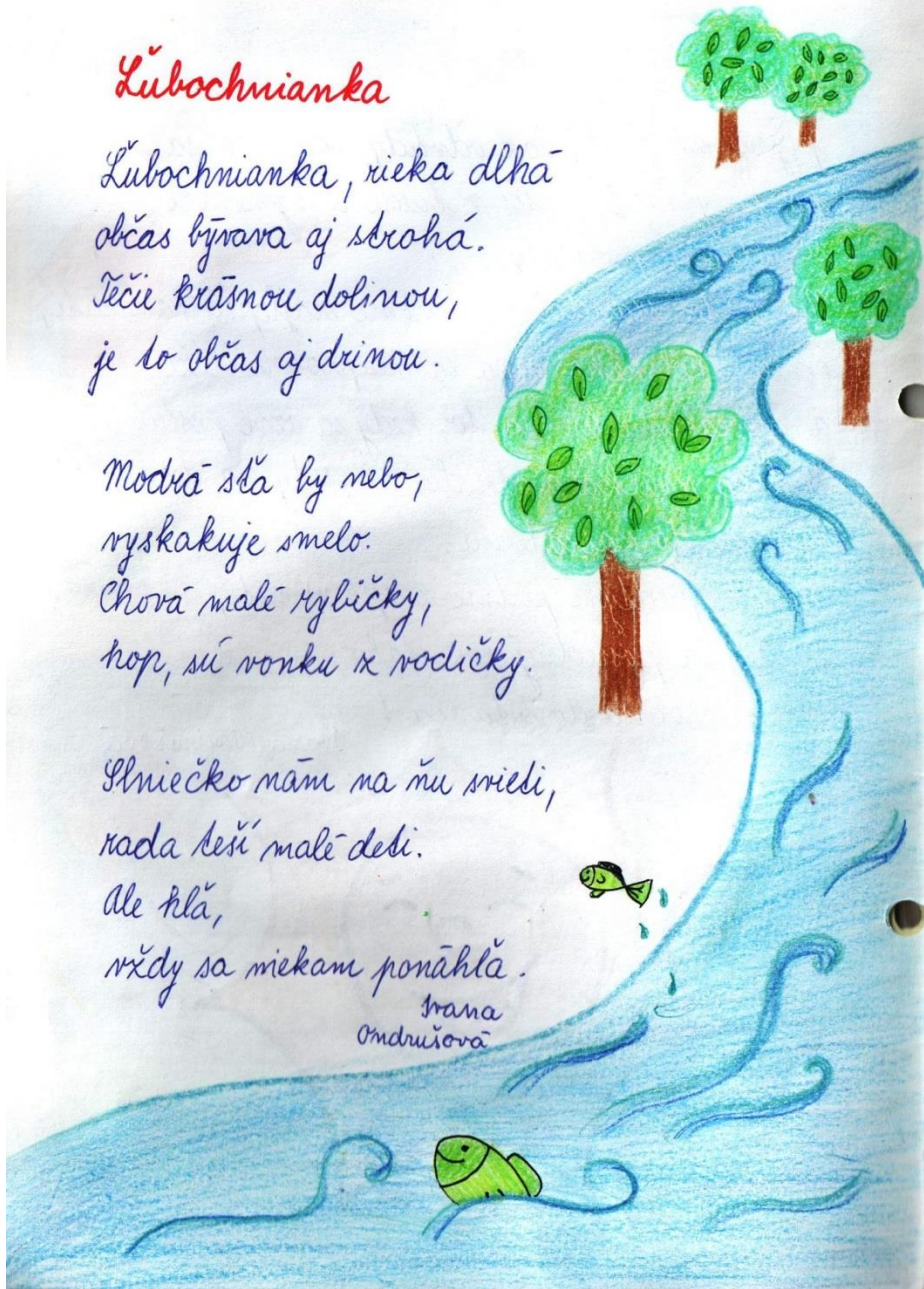 Ľubochnianka
Ľubochnianka, rieka dlhá
občas bývava aj strohá.
Tečie krásnou dolinou,
je to občas aj drinou.
Modrá sťa by nebo,
vyskakuje smelo.
Chová malé rybičky,
hop, sú vonku z vodičky.
Slniečko nám na ňu svieti,
rada teší malé deti.
Ale hľa,
vždy sa niekam ponáhľa.
Ivana
Ondrušová